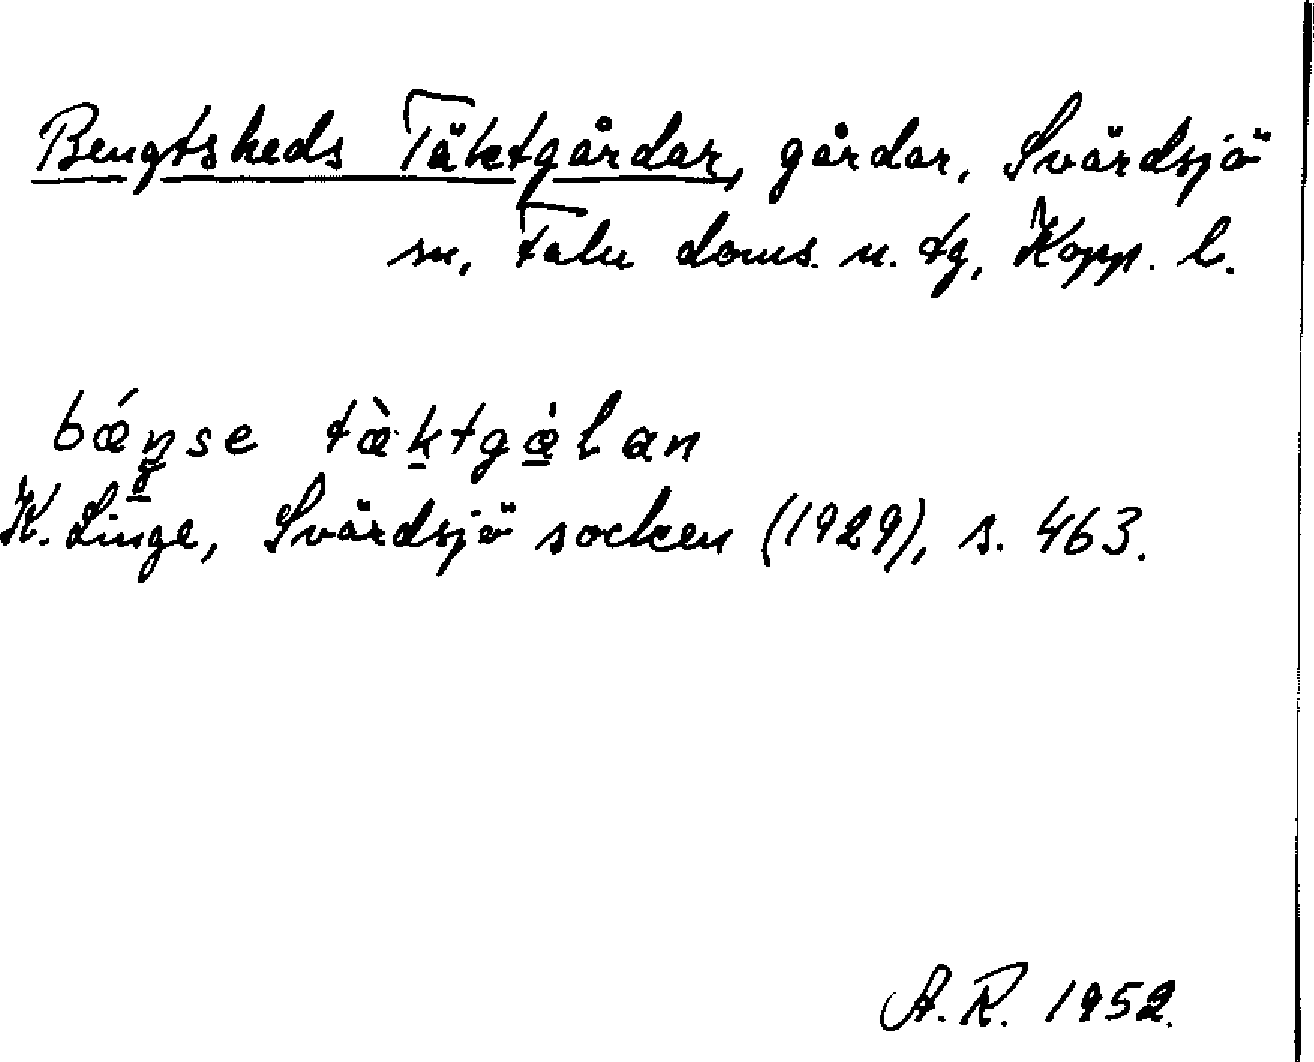 Bengtsheds Täktgårdar, gårdar, Svärdsjö
sn, Falu doms. n. tg, Kopp. l.
bǽŋse tæ̀ktgæ̀lan
K. Linge, Svärdsjö socken (1929), s. 463.
A. R. 1952.